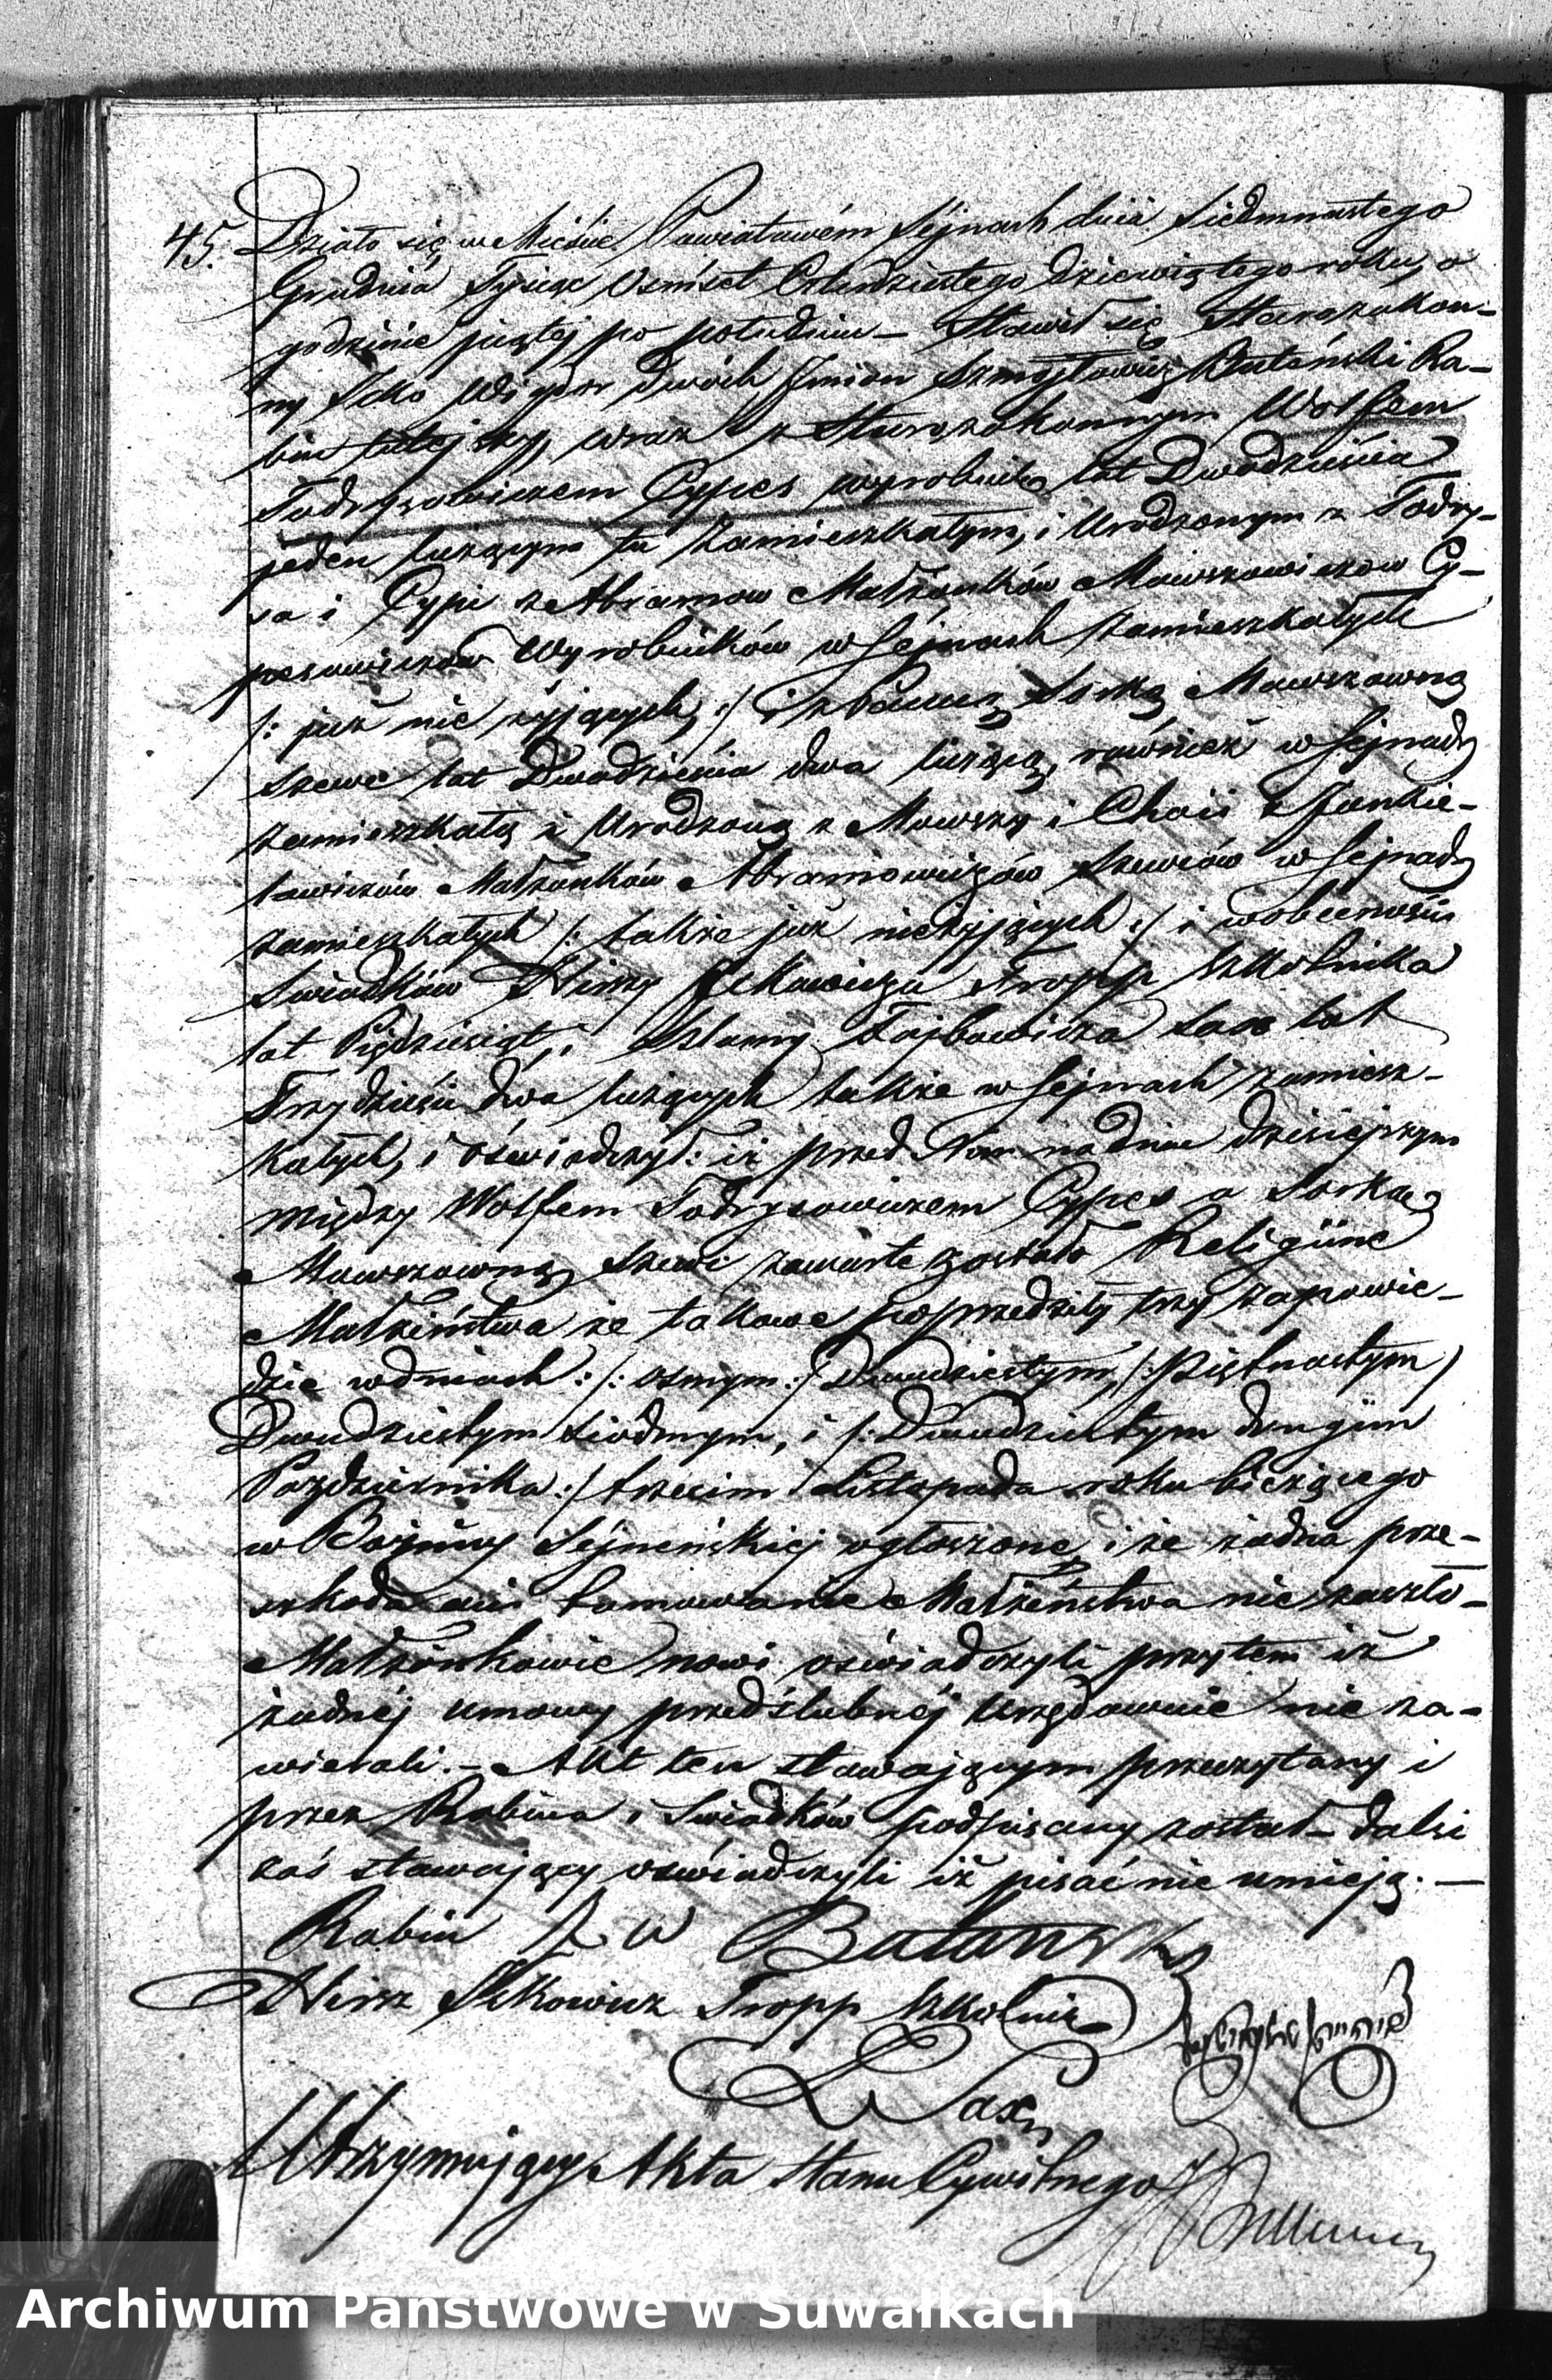 45. Działo się w Mieście Powiatowém Sejnach dnia Siedmnastego
Grudnia Tysiąc Ośmset Czterdziestego dziewiątego roku, o
godzinie piątej po południu – Stawił się Starozakon-
ny Icko Wigdor dwóch Jmion Szmojłowicz Batański Ra-
bin tutejszy, wraz z Starozakonnym Wolfem
Todrysowiczem Cypes wyrobnik lat Dwadzieścia
jeden liczącym tu zamieszkałym, i Urodzonym z Todry-
sa i Cypi z Abramow Małżonków Mowszowiczow Cy-
pesowiczow Wyrobników w Sejnach zamieszkałych
/: już nie żyjących :/ i z Panną Sorką Mowszowną
Szewc lat Dwadzieścia dwa liczącą, również w Sejnach
zamieszkałą i Urodzoną z Mowszy i Chai z Jankie-
lowiczów Małżonków Abramowiczów Szewców w Sejnach
zamieszkałych /: także już nieżyjących :/ i w obecności
Swiadków Hirszy Ickowicza Tropp Szkolnika
lat Pięćdziesiąt, i Szlomy Fajbowicza Sax lat
Trzydzieści dwa liczących także w Sejnach zamiesz-
kałych, i oświadczył: iż przed Nim na dniu dzisiejszym
między Wolfem Todrysowiczem Cypes a Sorką
Mowszowną Szewc zawarte zostało Religijne
Małżeństwo że takowe poprzedziły trzy zapowie-
dzie w dniach: /: osmym :/ Dwudziestym, /: Piętnastym /
Dwudziestym siódmym, i /: Dwudziestym drugim
Pazdziernika :/ trzecim Listopada roku bieżącego
w Bożnicy Sejneńskiej ogłoszone, i że żadna prze-
szkoda ani tamowanie Małżeństwa nie zaszło –
Małżonkowie nowi oświadczyli przytem iż
żadnéj umowy przedślubnéj Urzędownie nie za-
wierali. – Akt ten stawającym przeczytany i
przez Rabina i Swiadków podpisany został – dalsi
zaś stawający oświadczyli iż pisać nie umieją. —
Rabin J. W Batanski
Hirsz Ickowicz Tropp Szkolnik
Sax
Utrzymujący Akta Stanu Cywilnego
Archiwum Państwowe w Suwałkach